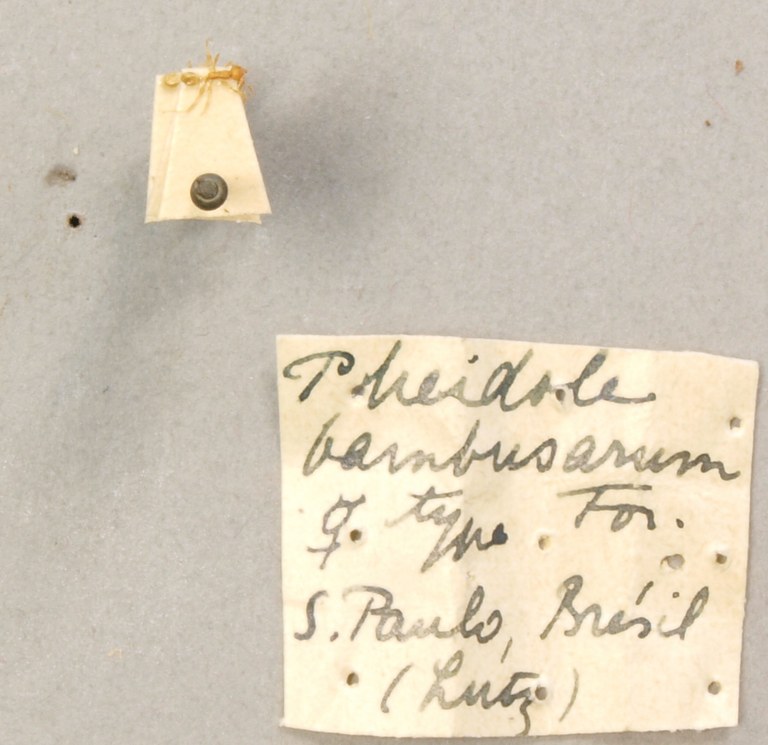 Pheidole
bambusarum
☿ type For.
S. Paulo, Brésil
(Lutz)